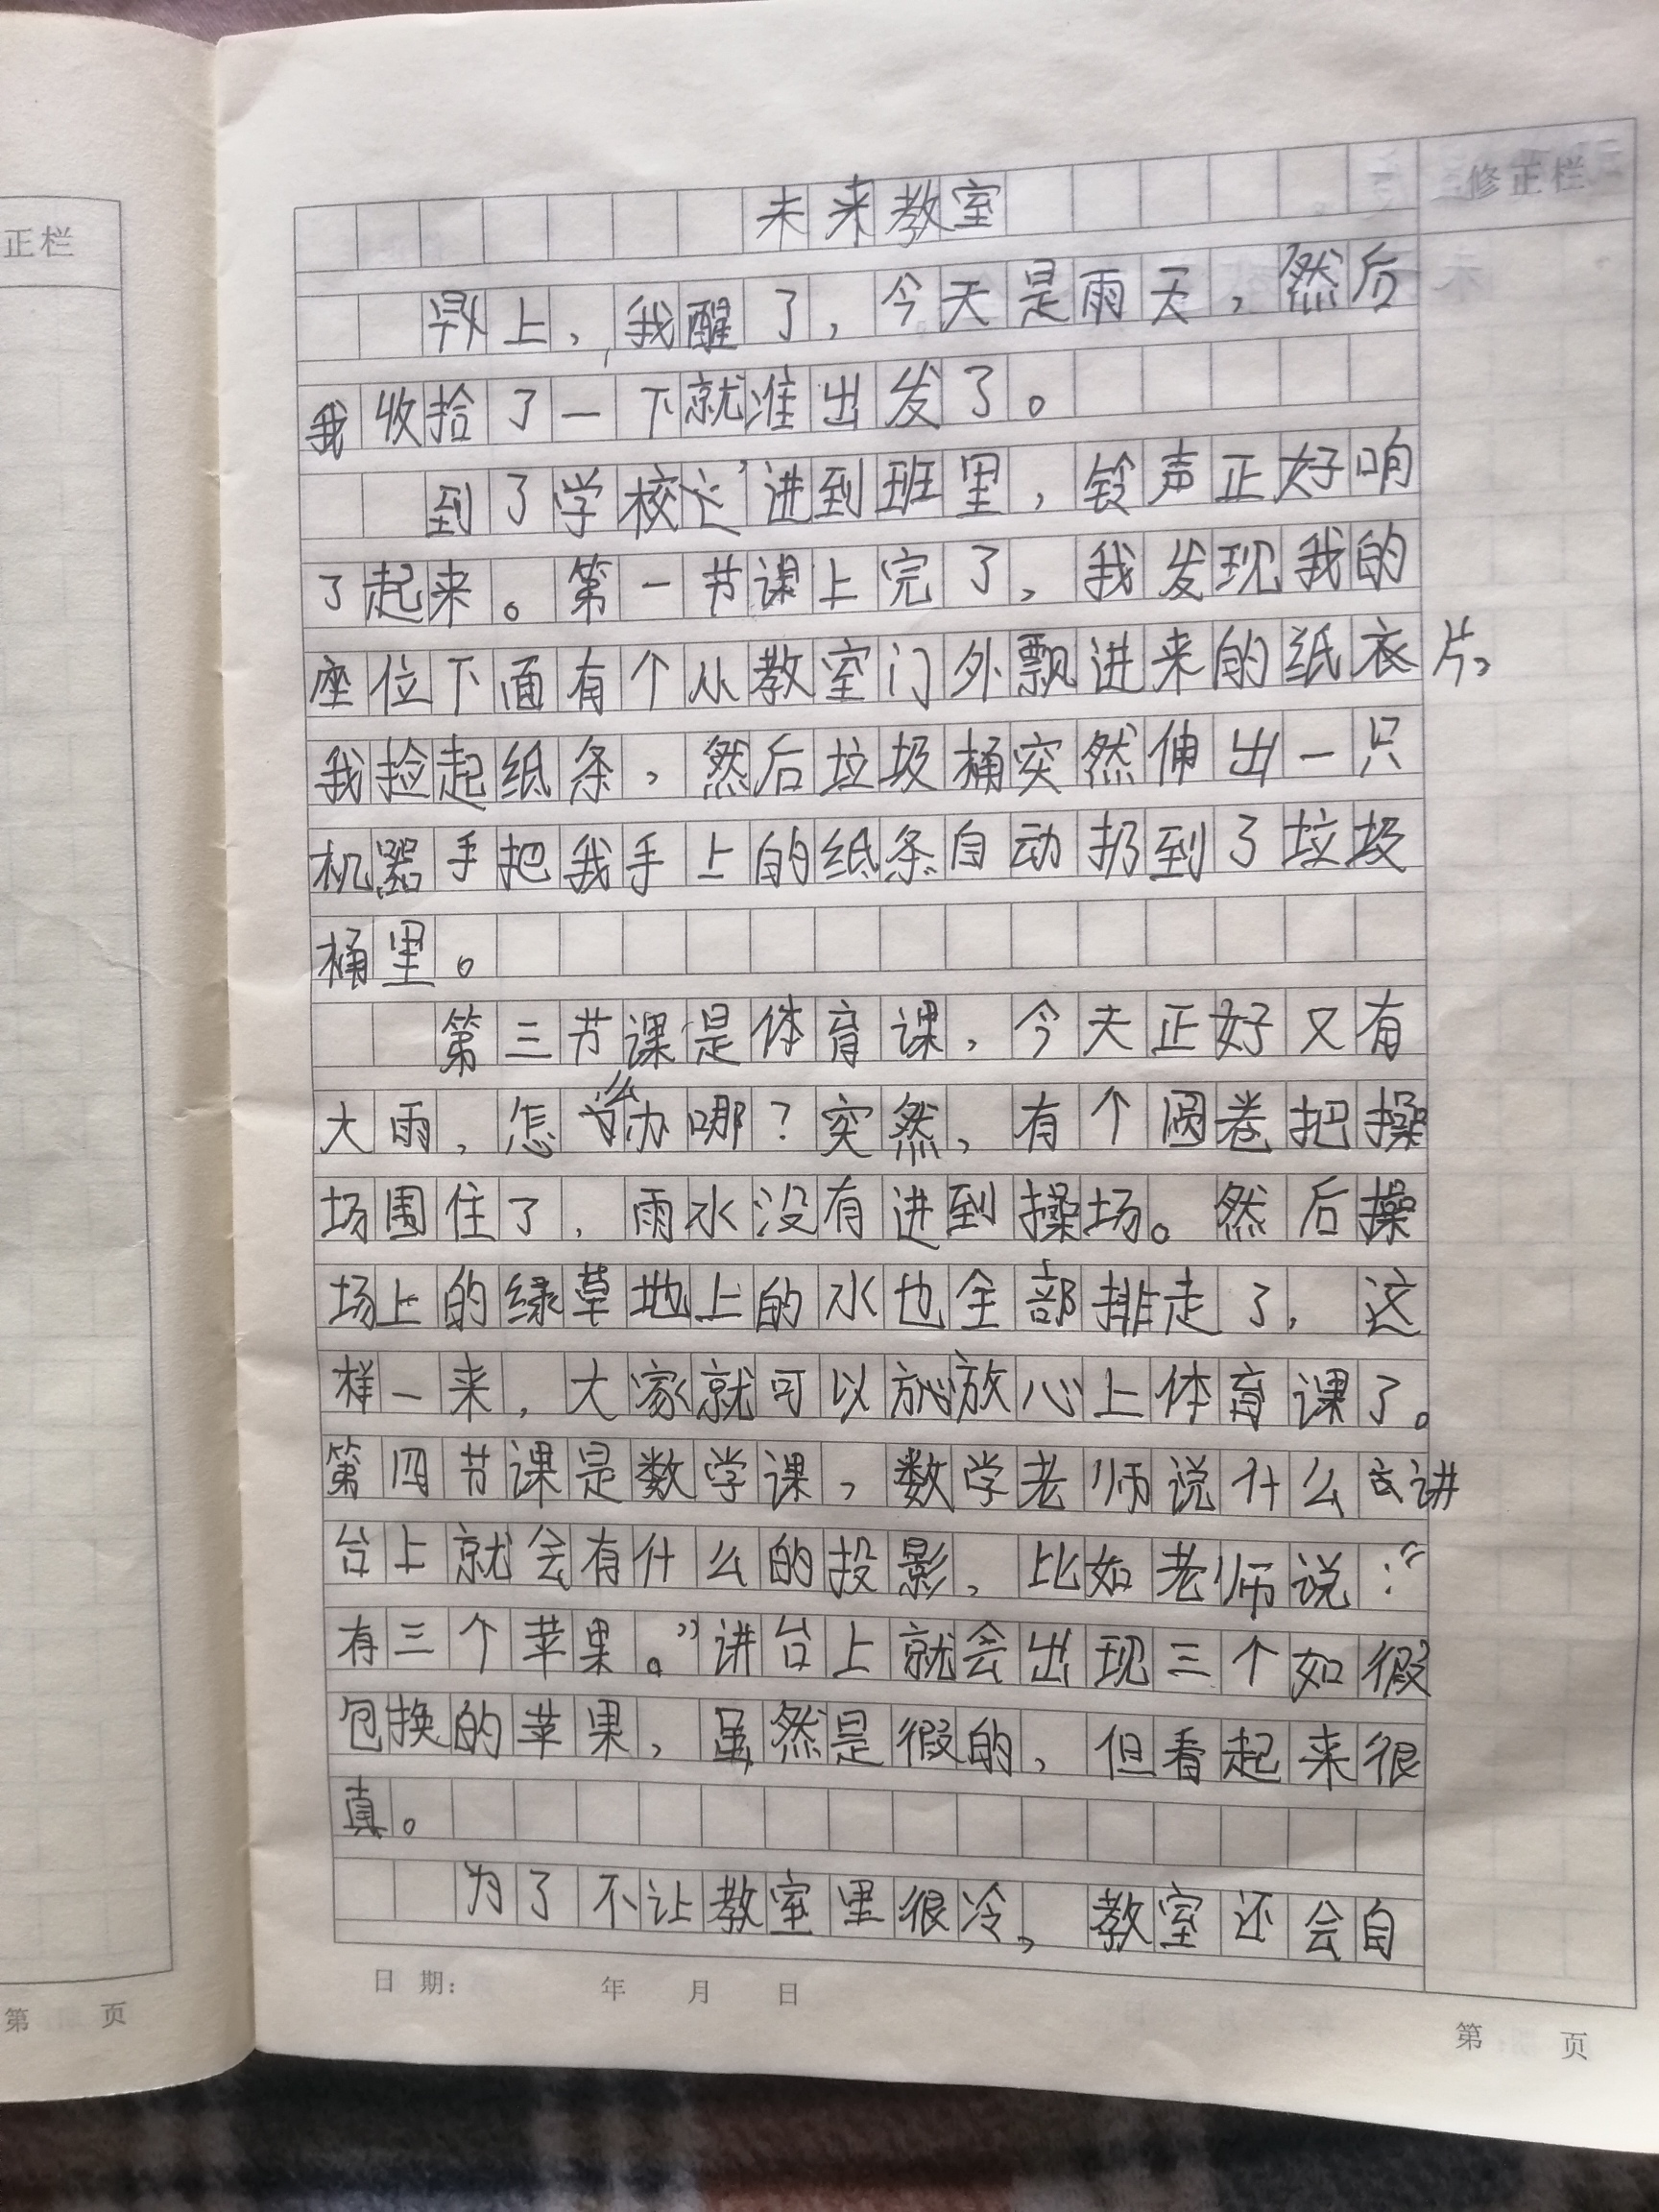 正栏
修正栏
未来教室
早上，我醒了，今天是雨天，然后
我收拾了一下就准出发了。
到了学校，进到班里，铃声正好响
了起来。第一节课上完了，我发现我的
座位下面有个从教室门外飘进来的纸片。
我捡起纸条，然后垃圾桶突然伸出一只
机器手把我手上的纸条自动扔到了垃圾
桶里。
第三节课是体育课，今天正好又有
大雨，怎么办哪？突然，有个圆卷把操
场围住了，雨水没有进到操场。然后操
场上的绿草地上的水也全部排走了，这
样一来，大家就可以放心上体育课了。
第四节课是数学课，数学老师说什么讲
台上就会有什么的投影，比如老师说：“
有三个苹果。”讲台上就会出现三个如假
包换的苹果，虽然是假的，但看起来很
真。
为了不让教室里很冷，教室还会自
日期： 年 月 日
第 页
第 页